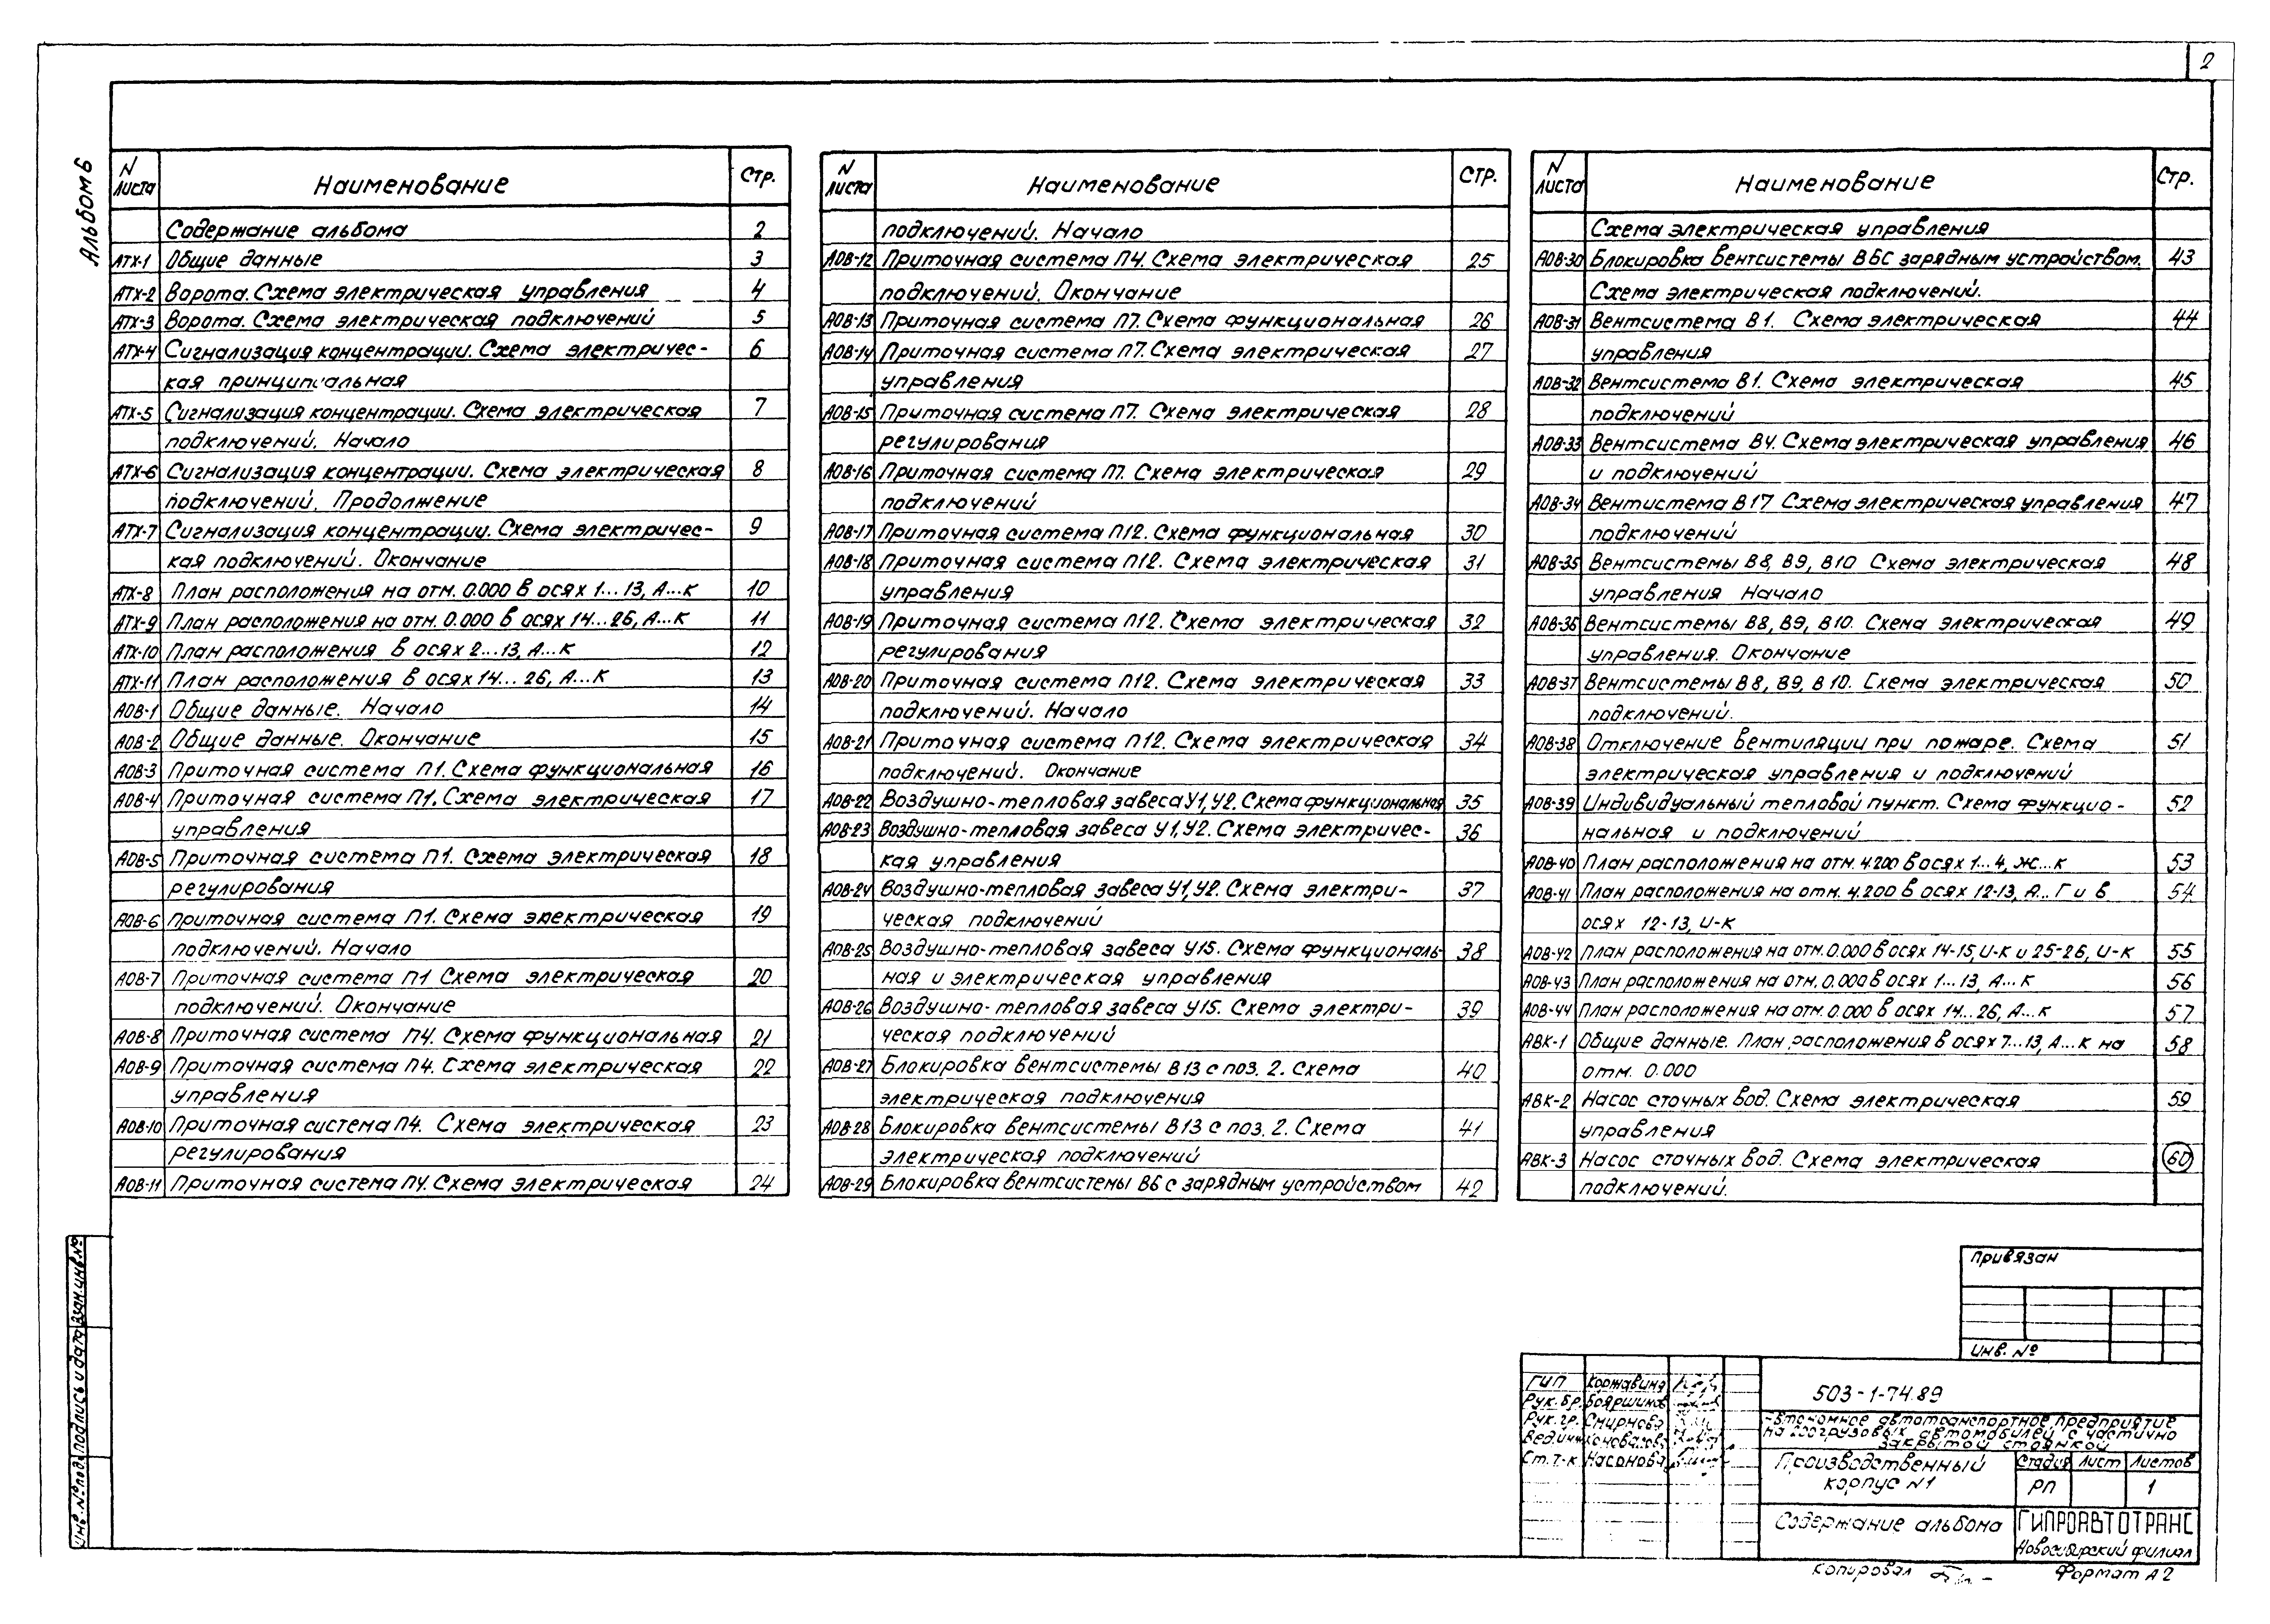 2
Альбом 6
N листа Наименование Стр.
Содержание альбома 2
АТХ-1 Общие данные 3
АТХ-2 Ворота. Схема электрическая управления 4
АТХ-3 Ворота. Схема электрическая подключений 5
АТХ-4 Сигнализация концентрации. Схема электричес- 6
кая принципиальная
АТХ-5 Сигнализация концентрации. Схема электрическая 7
подключений. Начало
АТХ-6 Сигнализация концентрации. Схема электрическая 8
подключений. Продолжение
АТХ-7 Сигнализация концентрации. Схема электричес- 9
кая подключений. Окончание
АТХ-8 План расположения на отм. 0.000 в осях 1...13, А...К 10
АТХ-9 План расположения на отм. 0.000 в осях 14...26, А...К 11
АТХ-10 План расположения в осях 2...13, А...К 12
АТХ-11 План расположения в осях 14...26, А...К 13
АОВ-1 Общие данные. Начало 14
АОВ-2 Общие данные. Окончание 15
АОВ-3 Приточная система П1. Схема функциональная 16
АОВ-4 Приточная система П1. Схема электрическая 17
управления
АОВ-5 Приточная система П1. Схема электрическая 18
регулирования
АОВ-6 Приточная система П1. Схема электрическая 19
подключений. Начало
АОВ-7 Приточная система П1 Схема электрическая 20
подключений. Окончание
АОВ-8 Приточная система П4. Схема функциональная 21
АОВ-9 Приточная система П4. Схема электрическая 22
управления
АОВ-10 Приточная система П4. Схема электрическая 23
регулирования
АОВ-11 Приточная система П4. Схема электрическая 24
N листа Наименование Стр.
подключений. Начало
АОВ-12 Приточная система П4. Схема электрическая 25
подключений. Окончание
АОВ-13 Приточная система П7. Схема функциональная 26
АОВ-14 Приточная система П7. Схема электрическая 27
управления
АОВ-15 Приточная система П7. Схема электрическая 28
регулирования
АОВ-16 Приточная система П7. Схема электрическая 29
подключений
АОВ-17 Приточная система П12. Схема функциональная 30
АОВ-18 Приточная система П12. Схема электрическая 31
управления
АОВ-19 Приточная система П12. Схема электрическая 32
регулирования
АОВ-20 Приточная система П12. Схема электрическая 33
подключений. Начало
АОВ-21 Приточная система П12. Схема электрическая 34
подключений. Окончание
АОВ-22 Воздушно-тепловая завеса У1, У2. Схема функциональная 35
АОВ-23 Воздушно-тепловая завеса У1, У2. Схема электричес- 36
кая управления
АОВ-24 Воздушно-тепловая завеса У1, У2. Схема электри- 37
ческая подключений
АОВ-25 Воздушно-тепловая завеса У15. Схема функциональ- 38
ная и электрическая управления
АОВ-26 Воздушно-тепловая завеса У15. Схема электри- 39
ческая подключений
АОВ-27 Блокировка вентсистемы В13 с поз. 2. Схема 40
электрическая подключения
АОВ-28 Блокировка вентсистемы В13 с поз. 2. Схема 41
электрическая подключений
АОВ-29 Блокировка вентсистемы В6 с зарядным устройством 42
N листа Наименование Стр.
Схема электрическая управления
АОВ-30 Блокировка вентсистемы В6 с зарядным устройством. 43
Схема электрическая подключений.
АОВ-31 Вентсистема В1. Схема электрическая 44
управления
АОВ-32 Вентсистема В1. Схема электрическая 45
подключений
АОВ-33 Вентсистема В4. Схема электрическая управления 46
и подключений
АОВ-34 Вентистема В17 Схема электрическая управления 47
подключений
АОВ-35 Вентсистемы В8, В9, В10 Схема электрическая 48
управления Начало
АОВ-36 Вентсистемы В8, В9, В10. Схема электрическая 49
управления. Окончание
АОВ-37 Вентсистемы В8, В9, В10. Схема электрическая 50
подключений.
АОВ-38 Отключение вентиляции при пожаре. Схема 51
электрическая управления и подключений
АОВ-39 Индивидуальный тепловой пункт. Схема функцио- 52
нальная и подключений
АОВ-40 План расположения на отм. 4.200 в осях 1...4, Ж...К 53
АОВ-41 План расположения на отм. 4.200 в осях 12-13, А...Г и в 54
осях 12-13, И-К
АОВ-42 План расположения на отм. 0.000 в осях 14-15, И-К и 25-26, И-К 55
АОВ-43 План расположения на отм. 0.000 в осях 1...13, А...К 56
АОВ-44 План расположения на отм. 0.000 в осях 14...26, А...К 57
АВК-1 Общие данные. План расположения в осях 7...13, А...К на 58
отм. 0.000
АВК-2 Насос сточных вод. Схема электрическая 59
управления
АВК-3 Насос сточных вод. Схема электрическая 60
подключений.
Инв. № подл. Подпись и дата Взам. инв. №
Привязан
Инв. №
ГИП Коржавина
Рук. бр. Бояршинов
Рук. гр. Смирнова
Вед. инж. Коновалова
Ст. т-к. Насонова
503-1-74.89
Автономное автотранспортное предприятие
на грузовых автомобилей с частично
закрытой стоянкой
Производственный корпус N1
Стадия Лист Листов
РП 1
Содержание альбома
ГИПРОАВТОТРАНС
Новосибирский филиал
Копировал
Формат А2